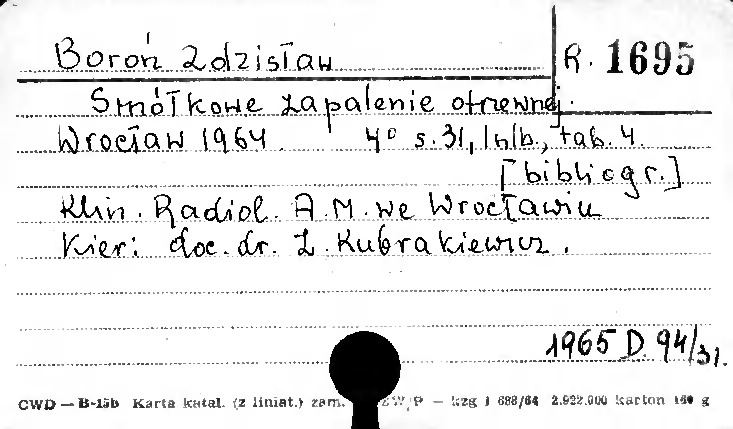 Boroń Zdzisław R. 1695
Smółkowe zapalenie otrzewnej.
Wrocław 1964. 4° s. 31, 1 nlb., tab. 4.
[bibliogr.]
Klin. Radiol. A.M. we Wrocławiu
Kier: doc. dr. Z. Kubrakiewicz.
1965 D. 94/31.
CWD — B-15b Karta katal. (z liniat.) zam. — kzg 1 688/64 2.922.000 karton 160 g